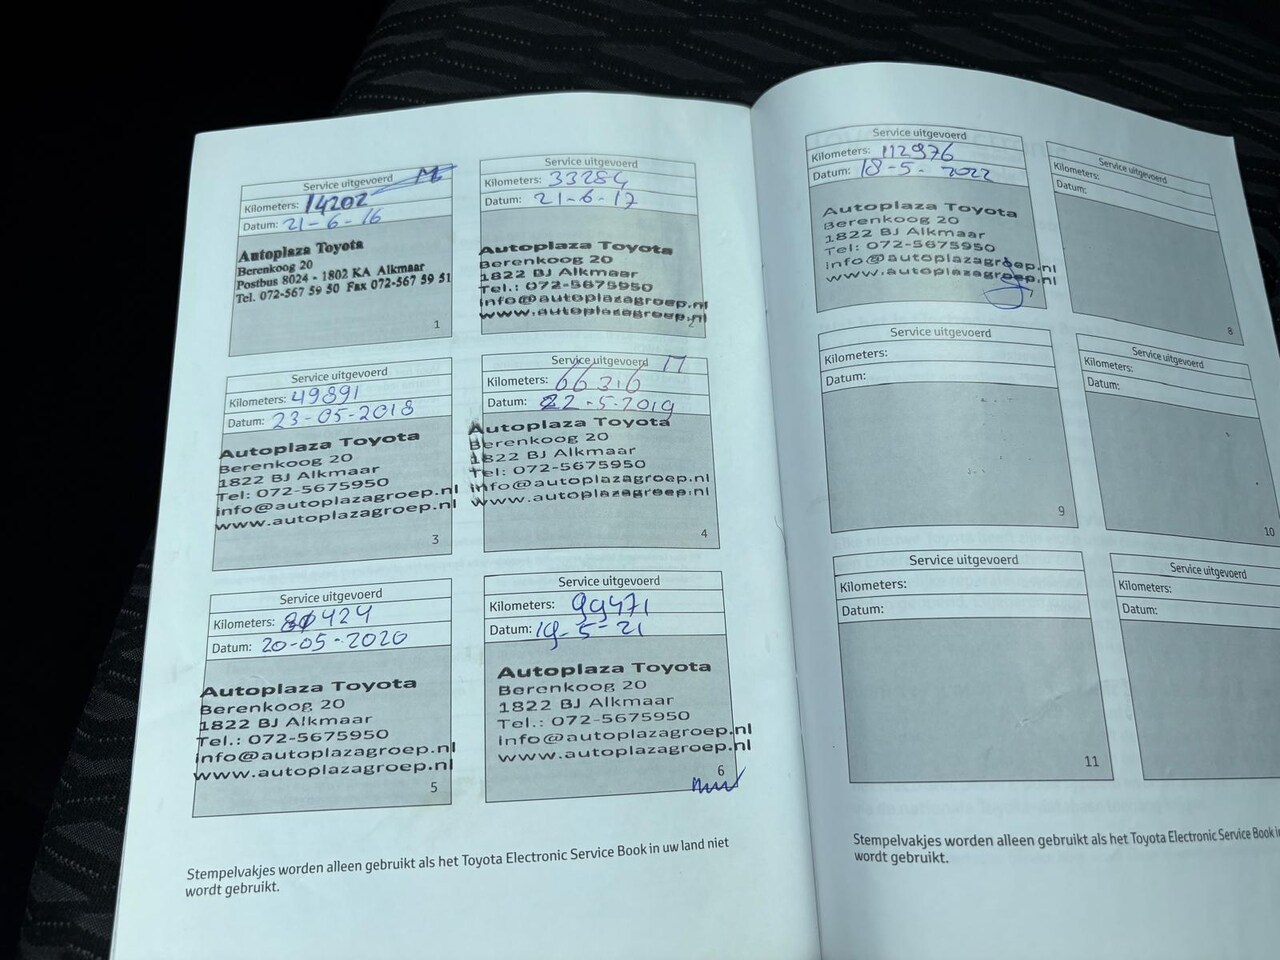 Service uitgevoerd
Kilometers: 14202
Datum: 21-6-16
Autoplaza Toyota
Berenkoog 20
Postbus 8024 - 1802 KA Alkmaar
Tel. 072-567 59 50 Fax 072-567 59 51
1
Service uitgevoerd
Kilometers: 33284
Datum: 21-6-17
Autoplaza Toyota
Berenkoog 20
1822 BJ Alkmaar
Tel.: 072-5675950
info@autoplazagroep.nl
www.autoplazagroep.nl
2
Service uitgevoerd
Kilometers: 49891
Datum: 23-05-2018
Autoplaza Toyota
Berenkoog 20
1822 BJ Alkmaar
Tel: 072-5675950
info@autoplazagroep.nl
www.autoplazagroep.nl
3
Service uitgevoerd
Kilometers: 66316
Datum: 22-5-2019
Autoplaza Toyota
Berenkoog 20
1822 BJ Alkmaar
Tel: 072-5675950
info@autoplazagroep.nl
www.autoplazagroep.nl
4
Service uitgevoerd
Kilometers: 80424
Datum: 20-05-2020
Autoplaza Toyota
Berenkoog 20
1822 BJ Alkmaar
Tel.: 072-5675950
info@autoplazagroep.nl
www.autoplazagroep.nl
5
Service uitgevoerd
Kilometers: 99471
Datum: 19-5-21
Autoplaza Toyota
Berenkoog 20
1822 BJ Alkmaar
Tel.: 072-5675950
info@autoplazagroep.nl
www.autoplazagroep.nl
6
Stempelvakjes worden alleen gebruikt als het Toyota Electronic Service Book in uw land niet
wordt gebruikt.
Service uitgevoerd
Kilometers: 112976
Datum: 18-5-2022
Autoplaza Toyota
Berenkoog 20
1822 BJ Alkmaar
Tel: 072-5675950
info@autoplazagroep.nl
www.autoplazagroep.nl
Service uitgevoerd
Kilometers:
Datum:
8
Service uitgevoerd
Kilometers:
Datum:
9
Service uitgevoerd
Kilometers:
Datum:
10
Service uitgevoerd
Kilometers:
Datum:
11
Service uitgevoerd
Kilometers:
Datum:
Stempelvakjes worden alleen gebruikt als het Toyota Electronic Service Book
wordt gebruikt.